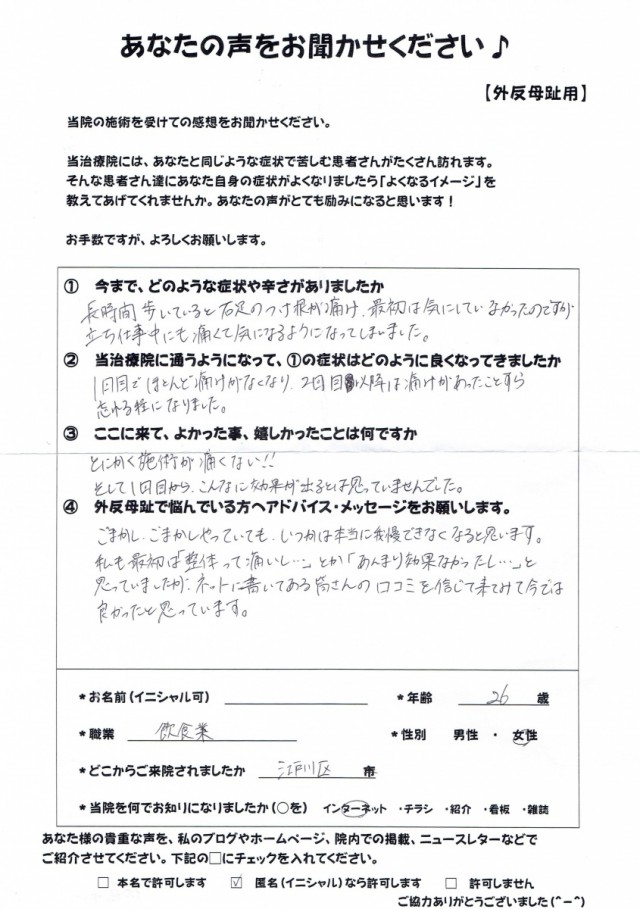 あなたの声をお聞かせください♪
【外反母趾用】
当院の施術を受けての感想をお聞かせください。
当治療院には、あなたと同じような症状で苦しむ患者さんがたくさん訪れます。
そんな患者さん達にあなた自身の症状がよくなりましたら「よくなるイメージ」を
教えてあげてくれませんか。あなたの声がとても励みになると思います！
お手数ですが、よろしくお願いします。
① 今まで、どのような症状や辛さがありましたか
長時間歩いていると右足のつけ根が痛け、最初は気にしていなかったのですが
立ち仕事中にも痛くて気になるようになってしまいました。
② 当治療院に通うようになって、①の症状はどのように良くなってきましたか
1回目でほとんど痛けがなくなり、2回目以降は痛けがあったことすら
忘れる程になりました。
③ ここに来て、よかった事、嬉しかったことは何ですか
とにかく施術が痛くない!!
そして1回目から、こんなに効果が出るとは思っていませんでした。
④ 外反母趾で悩んでいる方へアドバイス・メッセージをお願いします。
ごまかし、ごまかしやっていても、いつかは本当に我慢できなくなると思います。
私も最初は「整体って痛いし…」とか「あんまり効果なかったし…」と
思っていましたが、ネットに書いてある皆さんの口コミを信じて来てみて今では
良かったと思っています。
*お名前(イニシャル可) *年齢 26 歳
*職業 飲食業 *性別 男性 ・ 女性
*どこからご来院されましたか 江戸川区 市
*当院を何でお知りになりましたか(○を) インターネット ・チラシ ・紹介 ・看板 ・雑誌
あなた様の貴重な声を、私のブログやホームページ、院内での掲載、ニュースレターなどで
ご紹介させてください。下記の□にチェックを入れてください。
□ 本名で許可します ☑ 匿名(イニシャル)なら許可します □ 許可しません
ご協力ありがとうございました(^-^)